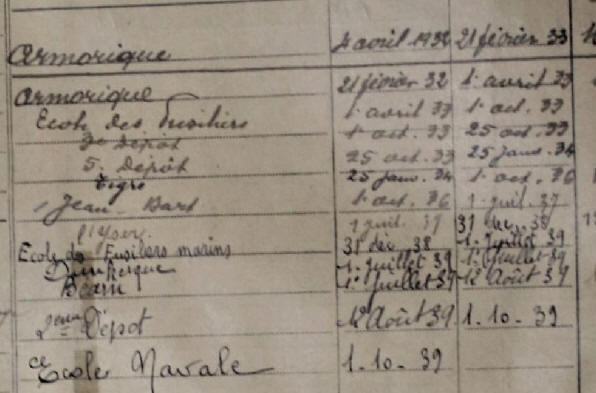 Armorique 4 avril 1932 21 février 33
Armorique 21 février 32 1 avril 33
Ecole des Fusiliers 1 avril 33 1 oct. 33
3e Dépôt 1 oct. 33 25 oct. 33
5. Dépôt 25 oct. 33 25 janv. 34
Tigre 25 janv. 34 1 oct. 36
Jean-Bart 1 oct. 36 1 juil. 37
l'Yser 1 juil. 37 31 dec. 38
Ecole des Fusiliers marins 31 déc. 38 1. juillet 39
Dunkerque 1. juillet 39 1. juillet 39
Béarn 1. juillet 39 12 Août 39
2ème Dépot 12 Août 39 1.10.39
Ecole Navale 1.10.39